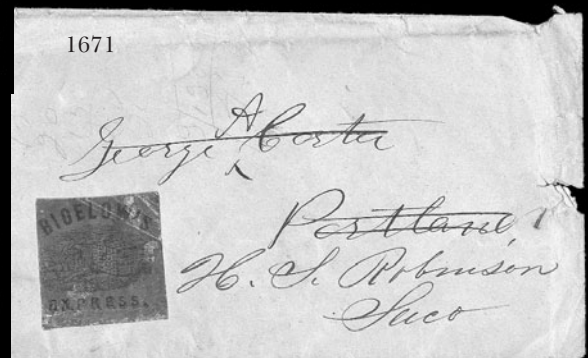 1671
George A Carter
Portland,
H. S. Robinson
Saco
BIGELOW'S
EXPRESS.